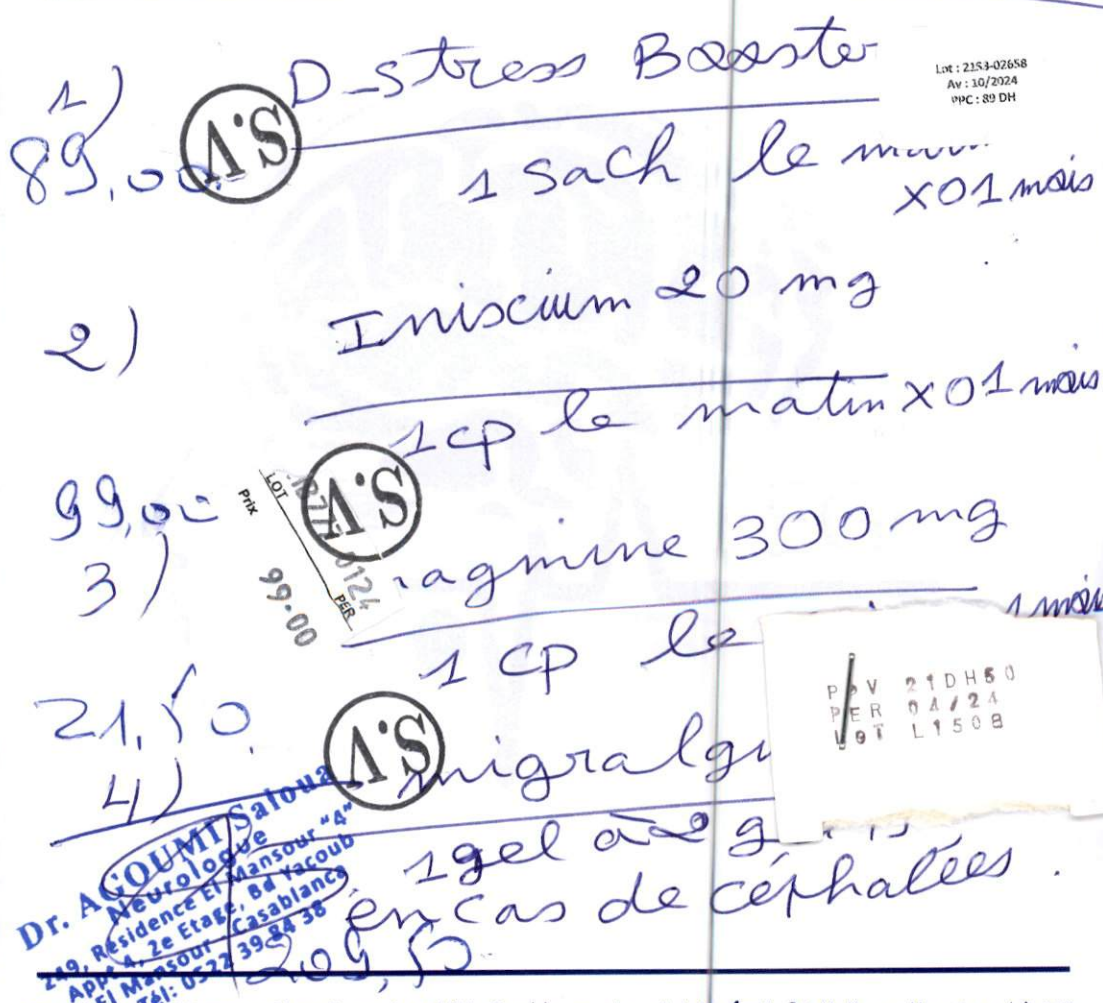 1) D-stress Booster
Lot : 2153-02658
Av : 10/2024
PPC : 89 DH
89,00 S.V
1 sach le
x01 mois
2) Iniscium 20 mg
1 cp le matin x01 mois
99,00
LOT
Prix
PER
99.00
S.V
3) agmine 300 mg
1 cp le 1 mois
PPV 21DH50
PER 04/24
LOT L1508
21,50
S.V
4) migralgi
1 gel à 2 g
en cas de céphalées.
Dr. AGOUMI Saloua
Neurologue
249, Résidence El Mansour "4"
Appt 4, 2e Etage, Bd Yacoub
El Mansour - Casablanca
Tél: 0522 39 84 38
209,50